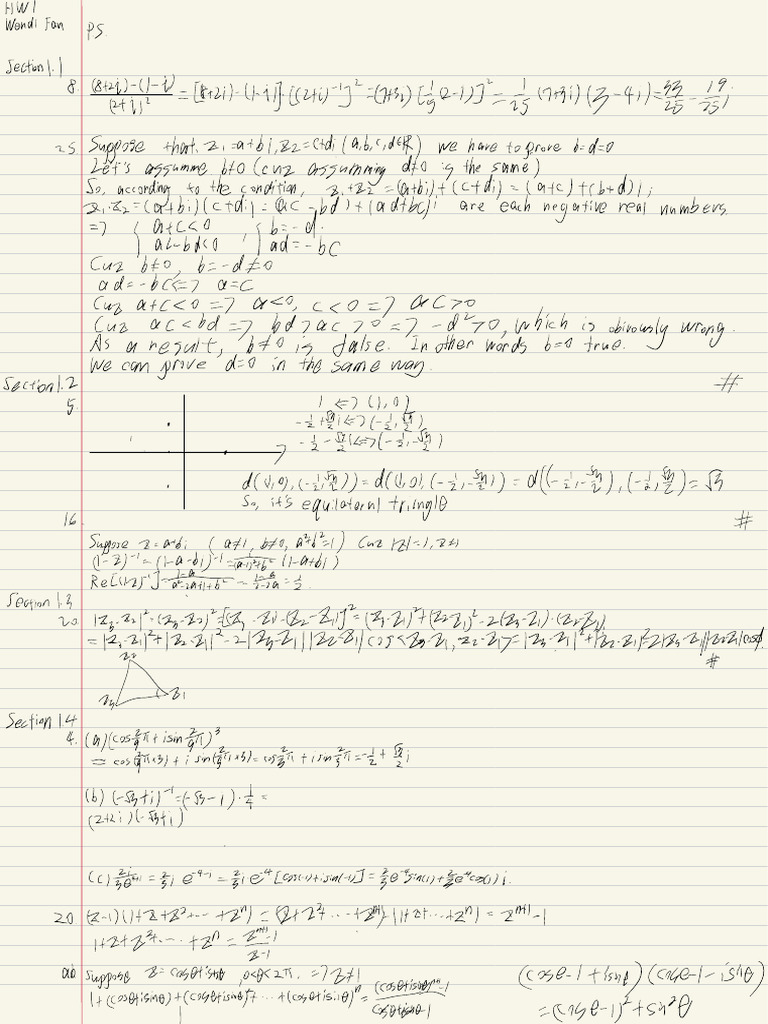 HW1
Wendi Fan
PS.
Section 1.1
8. \frac{(8+2i)-(1-i)}{(2+i)^2} = [8+2i)-(1-i)]·[(2+i)^{-1}]^2 = (7+3i) [\frac{1}{5}(2-i)]^2 = \frac{1}{25} (7+3i) (3-4i) = \frac{33}{25} - \frac{19}{25}i
25. Suppose that, z_1=a+bi, z_2=c+di (a,b,c,d∈R) we have to prove b=d=0
Let's assumme b≠0 (cuz assumming d≠0 is the same)
So, according to the condition, z_1+z_2 = (a+bi)+(c+di) = (a+c)+(b+d)i,
z_1·z_2=(a+bi)(c+di)=(ac-bd)+(ad+bc)i are each negative real numbers
=> { a+c<0 , { b=-d.
ac-bd<0 ad=-bc
Cuz b≠0, b=-d≠0
ad=-bc<=> a=c
Cuz a+c<0 => a<0, c<0 => ac>0
Cuz ac<bd => bd>ac>0 => -d^2>0, which is obivously wrong.
As a result, b≠0 is false. In other words b=0 true.
We can prove d=0 in the same way.
#
Section 1.2
5. 1 <=> (1,0)
-\frac{1}{2}+\frac{√3}{2}i<=>(-\frac{1}{2},\frac{√3}{2})
-\frac{1}{2}-\frac{√3}{2}i<=>(-\frac{1}{2},-\frac{√3}{2})
d((1,0),(-\frac{1}{2},\frac{√3}{2})) = d((1,0),(-\frac{1}{2},-\frac{√3}{2})) = d((-\frac{1}{2},-\frac{√3}{2}),(-\frac{1}{2},\frac{√3}{2}) = √3
So, it's equilateral triangle
#
16.
Suppose z=a+bi (a≠1, b≠0, a^2+b^2=1) Cuz |z|=1, z≠1
(1-z)^{-1} = (1-a-bi)^{-1} = \frac{1}{(a-1)^2+b^2} (1-a+bi)
Re[(1-z)^{-1}] = \frac{1-a}{a^2-2a+1+b^2} = \frac{1-a}{2-2a} = \frac{1}{2}
Section 1.3
20. |z_3-z_2|^2=(z_3-z_2)^2=[(z_3-z_1)-(z_2-z_1)]^2=(z_3-z_1)^2+(z_2-z_1)^2-2(z_3-z_1)·(z_2-z_1)
=|z_3-z_1|^2+|z_2-z_1|^2-2|z_3-z_1||z_2-z_1|cos<z_3-z_1,z_2-z_1>=|z_3-z_1|^2+|z_2-z_1|^2-2|z_3-z_1||z_2-z_1|cosϕ
#
z_2
z_3 z_1
Section 1.4
4. (a)(cos\frac{2}{9}π+isin\frac{2}{9}π)^3
= cos(\frac{2}{9}π×3)+i sin(\frac{2}{9}π×3)=cos\frac{2}{3}π+isin\frac{2}{3}π=-\frac{1}{2}+\frac{√3}{2}i
(b) (-√3+i)^{-1}=(-√3-i)·\frac{1}{4}=
(2+2i)(-√3+i)
20 (z-1)(1+z+z^2+···+z^n) = (z+z^2+···+z^{n+1})-(1+z+···+z^n) = z^{n+1}-1
1+z+z^2+···+z^n = \frac{z^{n+1}-1}{z-1}
Suppose z=cosθ+isinθ, 0<θ<2π. => z≠1
1+(cosθ+isinθ)+(cosθ+isinθ)^2+···+(cosθ+isinθ)^n=\frac{(cosθ+isinθ)^{n+1}-1}{cosθ+isinθ-1}
(cosθ-1+isinθ)(cosθ-1-isinθ)
=(cosθ-1)^2+sin^2θ